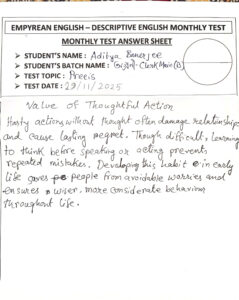 EMPYREAN ENGLISH – DESCRIPTIVE ENGLISH MONTHLY TEST
MONTHLY TEST ANSWER SHEET
➢ STUDENT'S NAME : Aditya Banerjee
➢ STUDENT'S BATCH NAME : Clerk Main (B)
➢ TEST TOPIC : Precis
➢ TEST DATE : 29/11/2025
Value of Thoughtful Action
Hasty actions without thought often damage relationships
and cause lasting regret. Though difficult, learning
to think before speaking or acting prevents
repeated mistakes. Developing this habit in early
life saves people from avoidable worries and
ensures wiser, more considerate behaviour
throughout life.